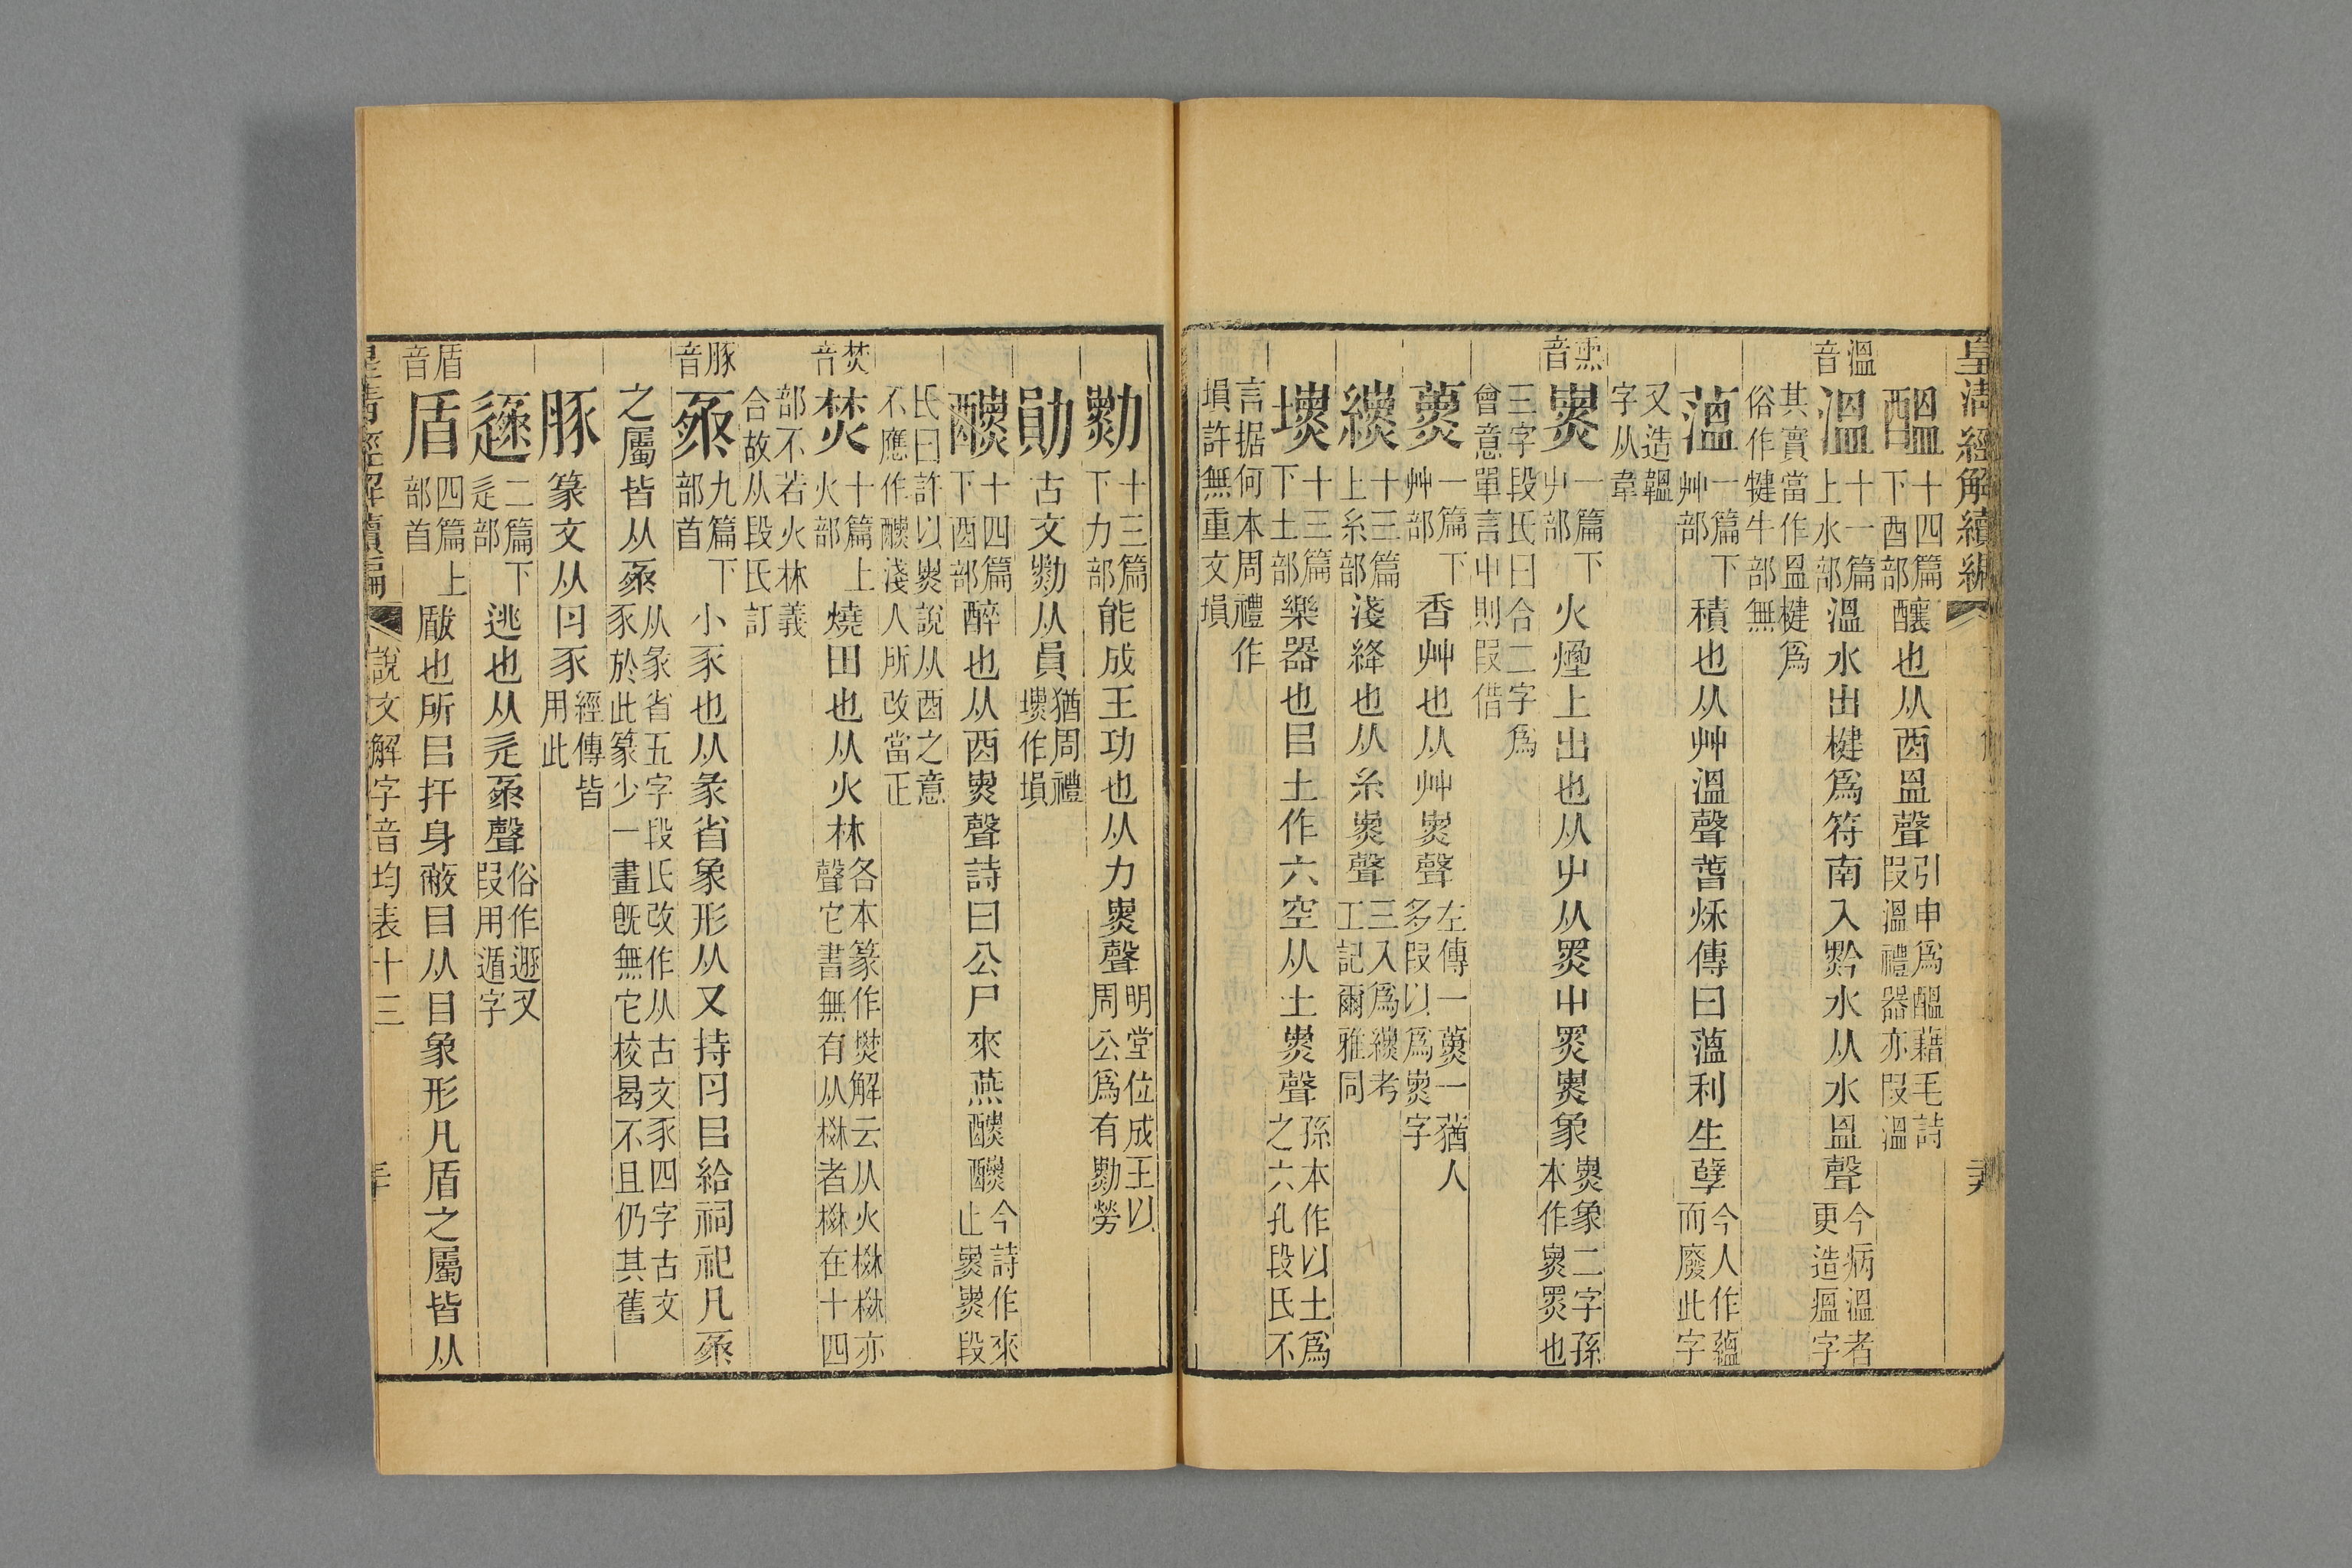 皇清經解續編
醞十四篇下酉部釀也从酉𥁕聲引申爲醞藉毛詩叚溫禮器亦叚溫
溫音
溫十一篇上水部溫水出楗爲符南入黔水从水𥁕聲今病溫者更造瘟字
其實當作𥁕楗爲俗作犍牛部無
薀一篇下艸部積也从艸溫聲萅秌傳曰薀利生孽今人作蘊而廢此字
又造韞字从韋
熏音
㷱一篇下屮部火煙上出也从屮从𪐗屮𪐗㷱象㷱象二字孫本作㷱𪐗也
三字段氏曰合二字爲會意單言屮則叚借
薰一篇下艸部香艸也从艸㷱聲左傳一薰一蕕人多叚以爲㷱字
纁十三篇上糸部淺絳也从糸㷱聲三入爲纁考工記爾雅同
壎十三篇下土部樂器也㠯土作六空从土㷱聲孫本作以土爲之六孔段氏不
言据何本周禮作塤許無重文塤
勳十三篇下力部能成王功也从力㷱聲明堂位成王以周公爲有勳勞
勛古文勳从員猶周禮壎作塤
醺十四篇下酉部醉也从酉㷱聲詩曰公尸來燕醺醺今詩作來止㷱㷱段
氏曰許以㷱說从酉之意不應作醺淺人所改當正
焚音
焚十篇上火部燒田也从火林各本篆作樊解云从火棥棥亦聲它書無有从棥者棥在十四
部不若火林義合故从段氏訂
豚音
𢑓九篇下部首小豕也从彖省象形从又持⺼㠯給祠祀凡𢑓
之屬皆从𢑓从彖省五字段氏改作从古文豕四字古文豕於此篆少一畫旣無它校曷不且仍其舊
豚篆文从⺼豕經傳皆用此
遯二篇下辵部逃也从辵𢑓聲俗作遯又叚用遁字
盾音
盾四篇上部首瞂也所㠯扞身蔽目从目象形凡盾之屬皆从
皇清經解續編 說文解字音均表十三